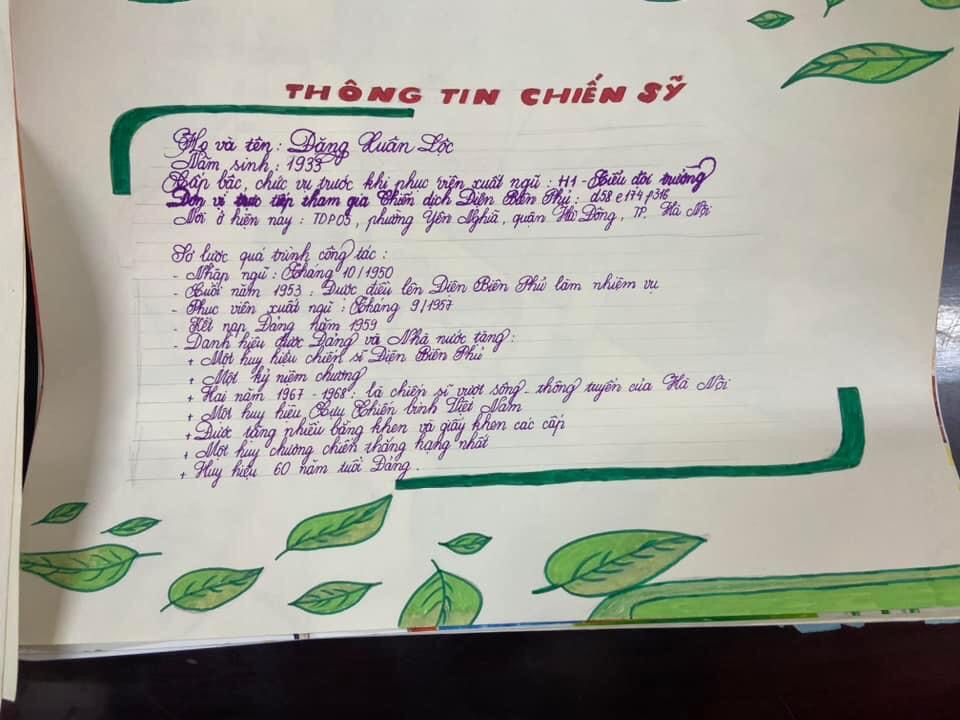 THÔNG TIN CHIẾN SỸ
Họ và tên: Đặng Xuân Lộc
Năm sinh: 1933
Cấp bậc, chức vụ trước khi phục viên xuất ngũ: H1 - Tiểu đội trưởng
Đơn vị trực tiếp tham gia Chiến dịch Điện Biên Phủ: d58 e174 f316
Nơi ở hiện nay: TDP05, phường Yên Nghĩa, quận Hà Đông, TP. Hà Nội
Sơ lược quá trình công tác:
- Nhập ngũ: Tháng 10/1950
- Cuối năm 1953: Được điều lên Điện Biên Phủ làm nhiệm vụ
- Phục viên xuất ngũ: Tháng 9/1957
- Kết nạp Đảng năm 1959
- Danh hiệu được Đảng và Nhà nước tặng:
+ Một huy hiệu chiến sĩ Điện Biên Phủ
+ Một kỷ niệm chương
+ Hai năm 1967 - 1968: là chiến sĩ vượt sông - thông tuyến của Hà Nội
+ Một huy hiệu Cựu Chiến binh Việt Nam
+ Được tặng nhiều bằng khen và giấy khen các cấp
+ Một huy chương chiến thắng hạng nhất
+ Huy hiệu 60 năm tuổi Đảng.